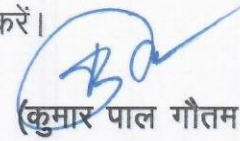 करें।
(कुमार पाल गौतम